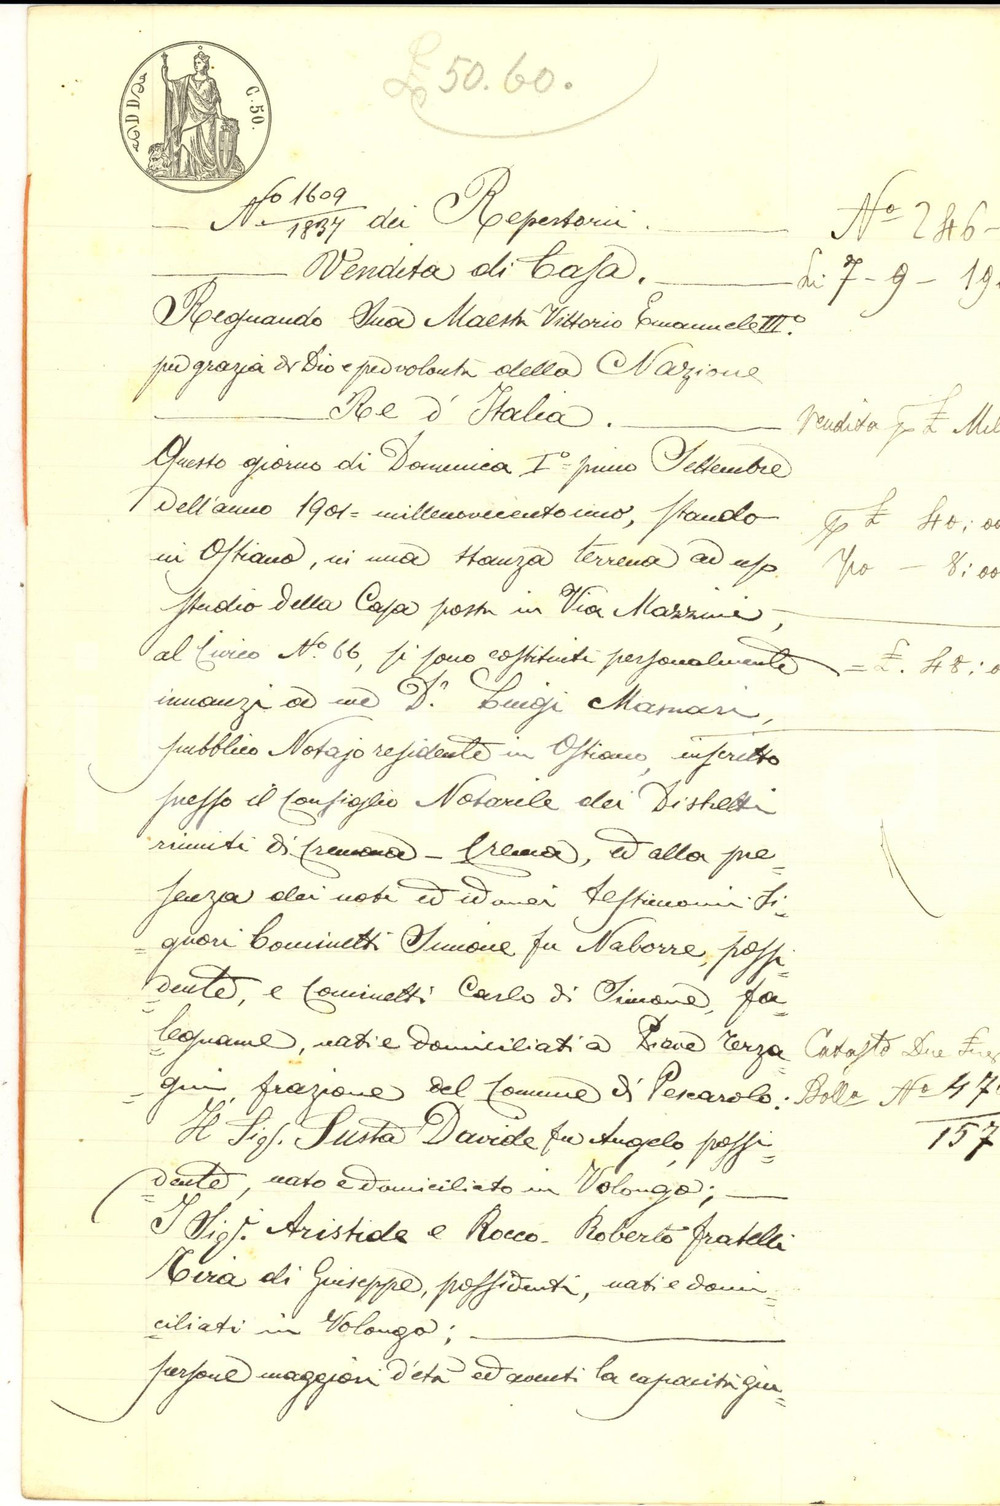 C. 50.
£ 50.60.
Nº 1609
1837 dei Repertorii.
Vendita di Casa.
Regnando Sua Maestà Vittorio Emanuele IIIº
per grazia di Dio e per volontà della Nazione
Re d'Italia.
Questo giorno di Domenica Iº= primo Settembre
dell'anno 1901= millenovecentouno, stando
in Ostiano, in una stanza terrena ad uso
studio della Casa posta in Via Mazzini,
al Civico Nº 66, si sono costituiti personalmente
innanzi a me Dr. Luigi
pubblico Notajo residente in Ostiano, inscritto
presso il Consiglio Notarile dei Distretti
riuniti di Cremona - Crema, ed alla pre=
senza dei noti ed idonei testimonii Si=
=gnori Cominetti Simone fu Naborre, possi=
=dente, e Cominetti Carlo di Simone, fa=
=legname, nati e domiciliati a Pieve Terza=
=gni, frazione del Comune di Pescarolo.
Il Sigr. Susta Davide fu Angelo, possi=
=dente, nato e domiciliato in Volongo;
I Sigri. Aristide e Rocco-Roberto fratelli
Tira di Giuseppe, possidenti, nati e domi=
=ciliati in Volongo;
persone maggiori d'età ed aventi la capacità giu=
Nº 246-
Li 7-9-19
Vendita p £ Mil
p £ 40:00
7/10 - 8:00
= £. 48:0
Catasto Due
: Bolla Nº 47
157